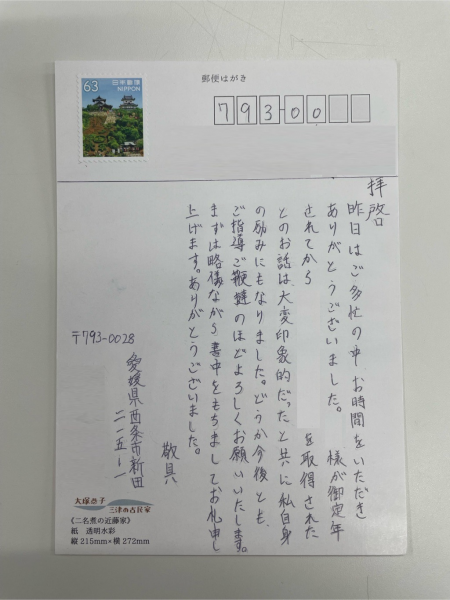 郵便はがき
63
日本郵便
NIPPON
793-00
拝啓
昨日はご多忙の中、お時間をいただき
ありがとうございました。
様が御定年
されてから
を取得された
とのお話は大変印象的だったと共に私自身
の励みにもなりました。どうか今後とも、
ご指導ご鞭撻のほどよろしくお願いいたします。
まずは略儀ながら書中をもちましてお礼申し
上げます。ありがとうございました。
敬具
〒793-0028
愛媛県西条市新田
二一五-一
大塚杏子
三津の古民家
《二名煮の近藤家》
紙 透明水彩
縦215mm×横272mm